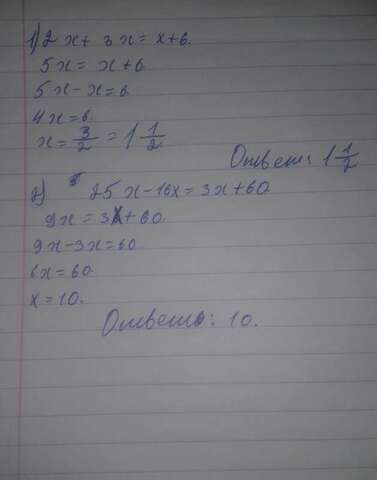 1) 2x + 3x = x + 6.
5x = x + 6
5x - x = 6
4x = 6
x = 3/2 = 1 1/2
Ответ: 1 1/2
2) 25x - 16x = 3x + 60.
9x = 3x + 60.
9x - 3x = 60
6x = 60.
x = 10.
Ответ: 10.